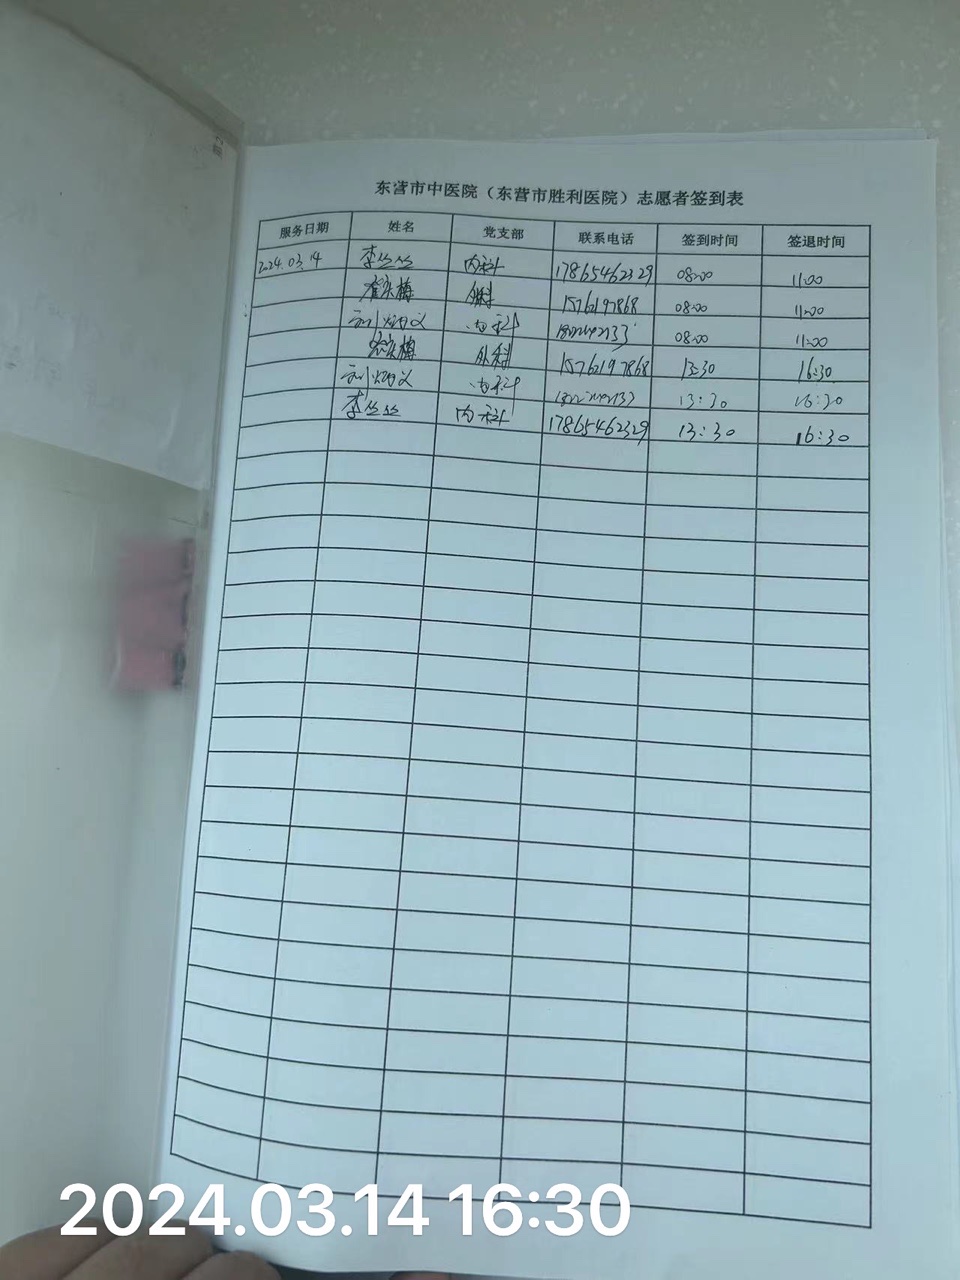 东营市中医院（东营市胜利医院）志愿者签到表
服务日期 姓名 党支部 联系电话 签到时间 签退时间
2024.03.14 李丝丝 内科 17865462329 08:00 11:00
外科 15762197868 08:00 11:00
内科 08:00 11:00
外科 15762197868 13:30 16:30
内科 13:30 16:30
李丝丝 内科 17865462329 13:30 16:30
2024.03.14 16:30